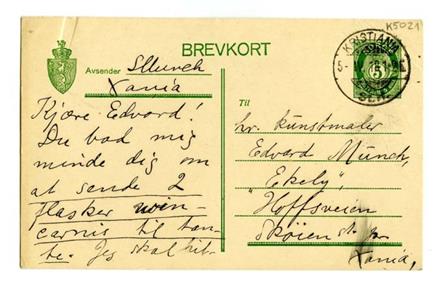 K5021
BREVKORT
Avsender SMunch
Xania
Kjære Edvard!
Du bad mig
minde dig om
at sende 2
flasker win-
carnis til tan-
te. Jeg skal hil-
KRISTIANIA
5
Til
hr. kunstmaler
Edvard Munch,
"Ekely"
Hoffsveien
Skøien st. pr.
Xania,